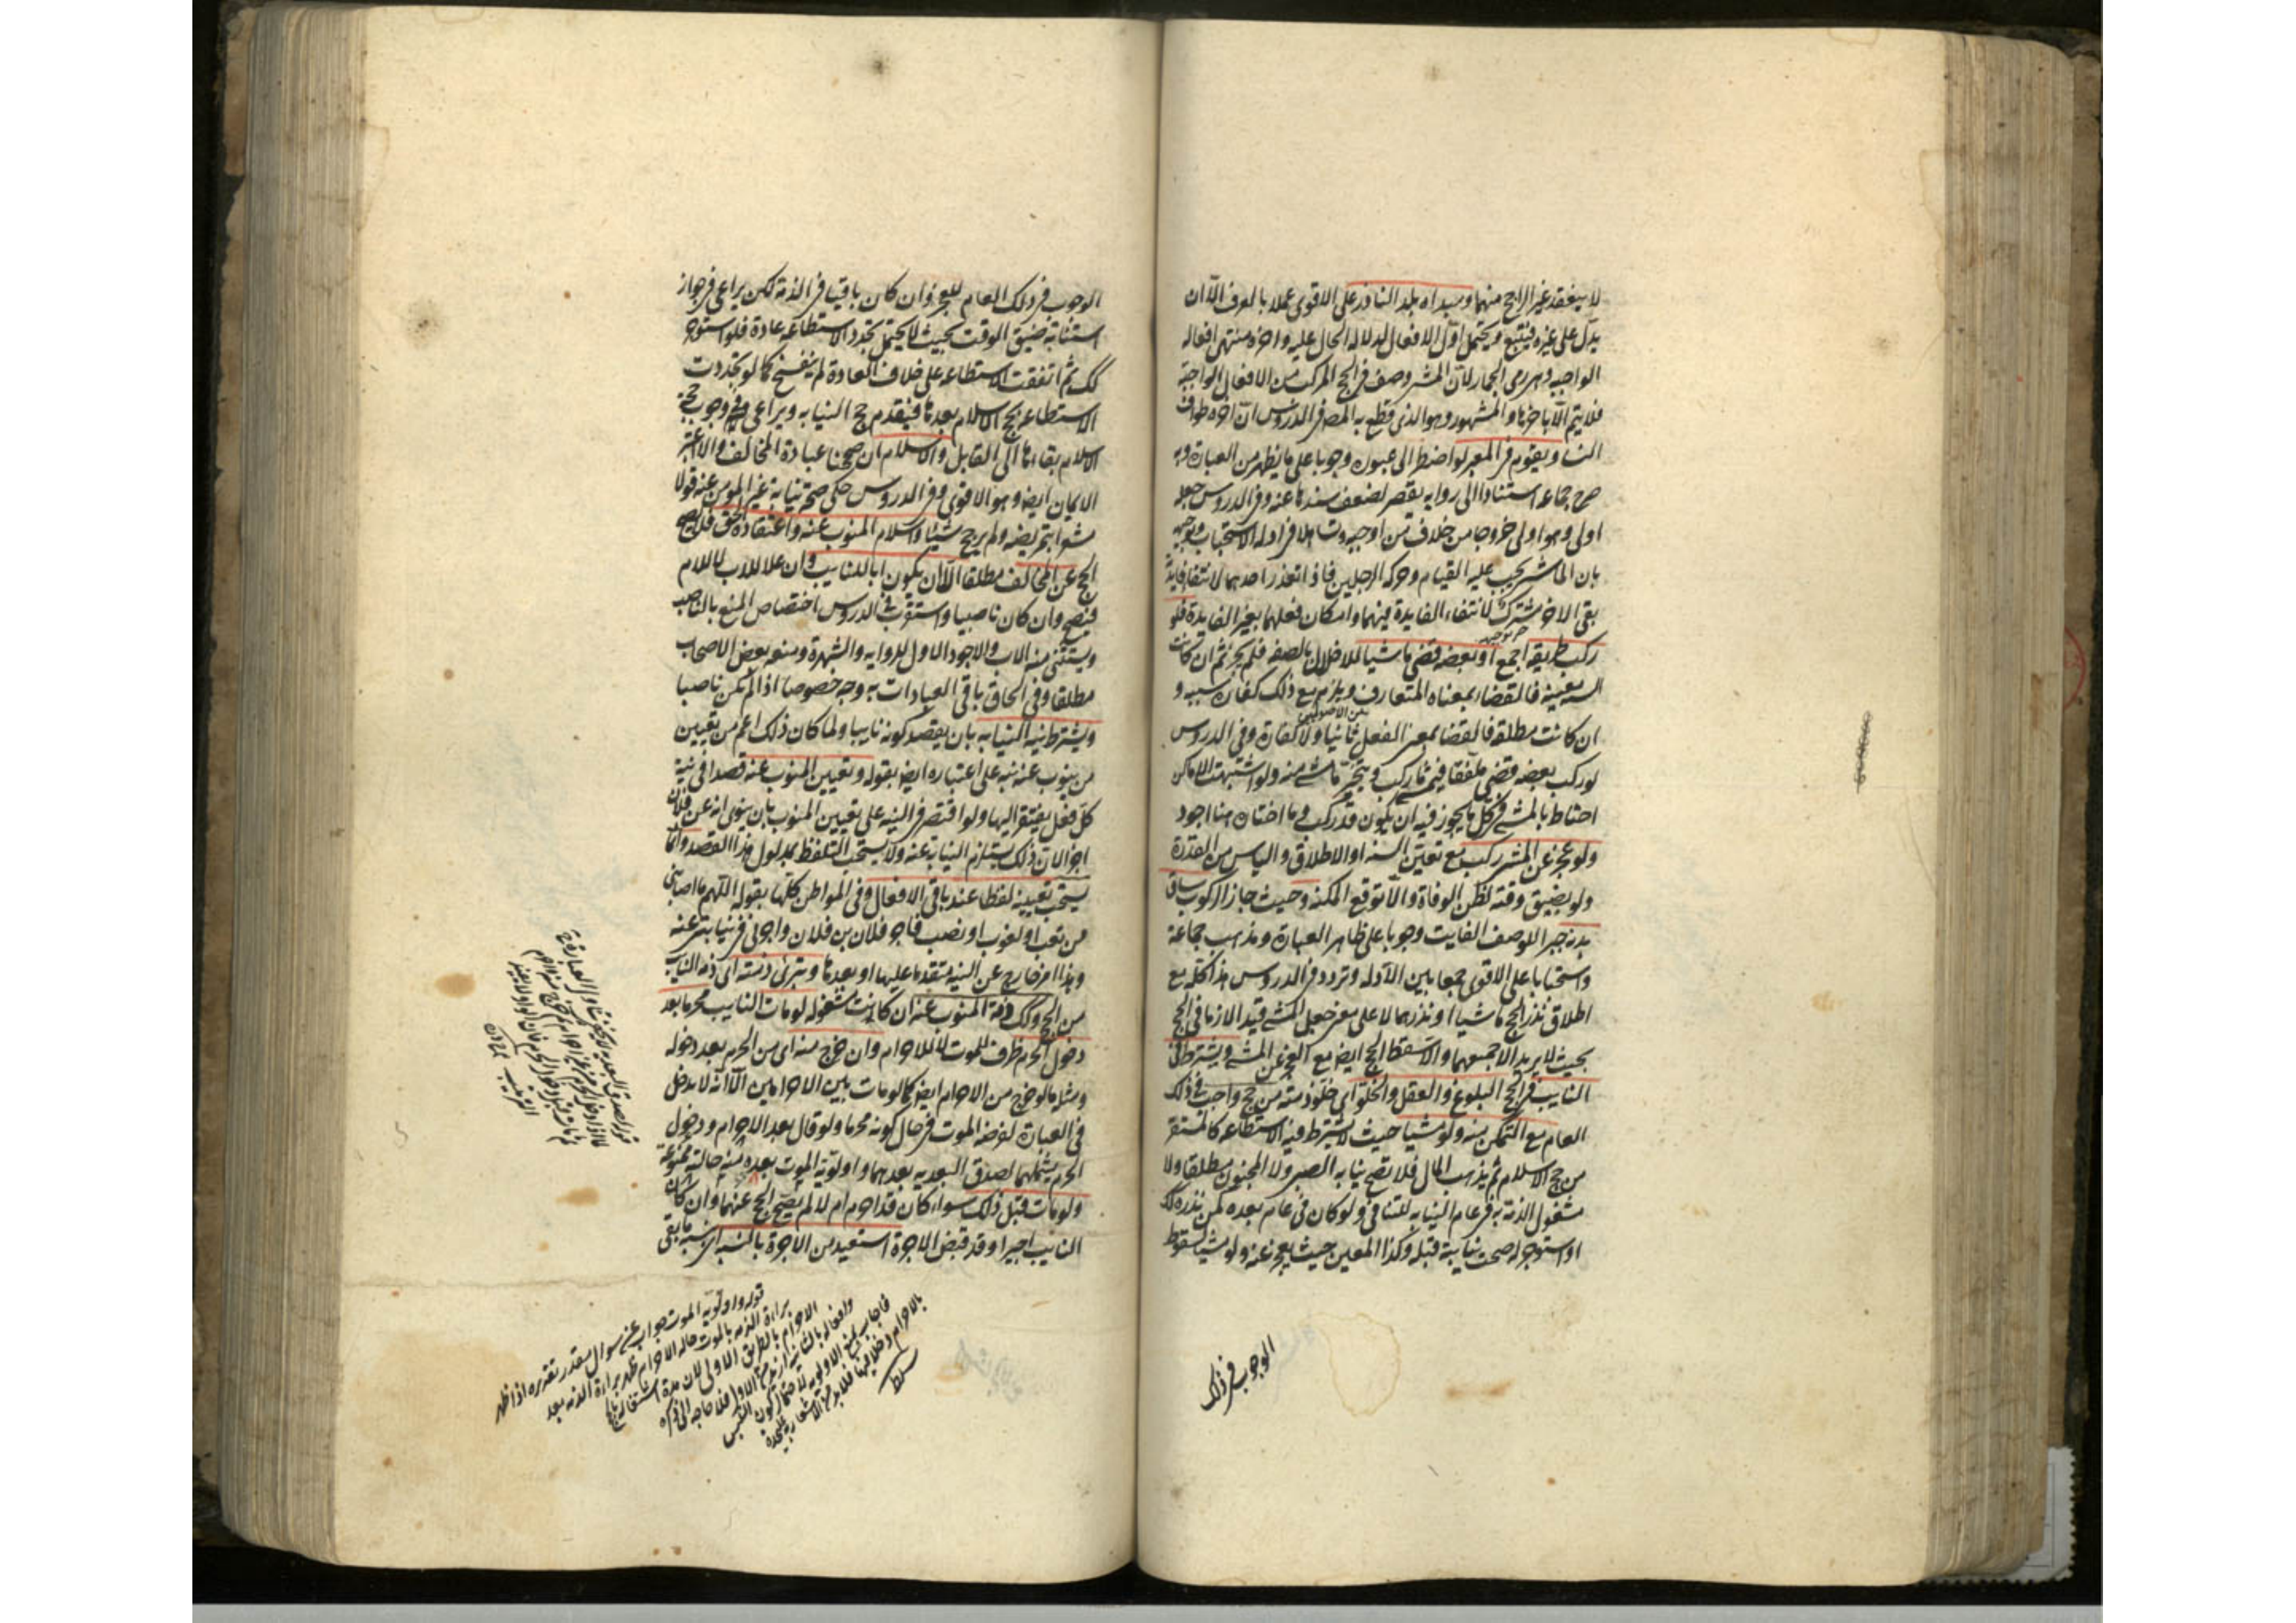 لا ينعقد غير الراجح منهما ومبدأه بلد الناذر على الاقوى عملا بالعرف الا ان
يدل على غيره فيتبع ويحتمل اول الافعال لدلالة الحال عليه واخره منتهى افعاله
الواجبه وهى رمى الجمار لان المشى وصف فى الحج المركب من الافعال الواجبة
فلا يتم الا باخرها والمشهور وهو الذى قطع به المص فى الدروس ان اخره طواف
النسا ويقوم فى المعبر لو اضطر الى عبوره وجوبا على ما يظهر من العبارة وبه
صرح جماعه استنادا الى روايه يقصر لضعف سندها عنه وفى الدروس جعله
اولى وهو اولى خروجا من خلاف من اوجبه وتساهلا فى ادله الاستحباب وتوجيهه
بان الماشى يجب عليه القيام وحركه الرجلين فاذا تعذر احدهما لانتفا فايدته
بقى الاخر مشترك لانتفاء الفايدة فيهما وامكان فعلهما بغير الفايدة فلو
ركب طريقه اجمع او بعضه قضى ماشيا للاخلال بالصفه فلم يجز ثم ان كانت
السنه معينه فالقضا بمعناه المتعارف ويلزم مع ذلك كفاره بسببه و
ان كانت مطلقه فالقضا بمعنى الفعل ثانيا ولا كفارة وفى الدروس
لو ركب بعضه قضى ملفقا فيمشى ما ركب ويتخير ما مشى منه ولو اشتبهت الاماكن
احتاط بالمشى فى كل ما يجوز فيه ان يكون قد ركب وما اختاره هنا اجود
ولو عجز عن المشى ركب مع تعين السنه او الاطلاق والياس من القدرة
ولو بضيق وقته لظن الوفاة والا توقع المكنه وحيث جاز الركوب ساق
بدنه جبرا للوصف الفايت وجوبا على ظاهر العبارة ومذهب جماعة
واستحبابا على الاقوى جمعا بين الادله وتردد فى الدروس هذا كله مع
اطلاق نذر الحج ماشيا او نذرهما لا على معنى جعل المشى قيد الازما فى الحج
بحيث لا يريد الا جمعهما والا سقط الحج ايض مع العجز عن المشى ويشترط فى
النايب فى الحج البلوغ والعقل والخلو اى خلو ذمته من حج واجب فى ذلك
العام مع التمكن منه ولو مشيا حيث لا يشترط فيه الاستطاعه كالمستقر
من حج الاسلام ثم يذهب المال فلا تصح نيابه الصبى ولا المجنون مطلقا ولا
مشغول الذمة به فى عام النيابه للتنافى ولو كان فى عام بعده كمن نذره كك
او استوجر له صحت نيابته قبله وكذا المعين حيث يعجز عنه ولو مشيا لسقوط
الوجوب فى ذلك
الوجوب فى ذلك العام للعجز وان كان باقيا فى الذمة لكن يراعى فى جواز
استنابته ضيق الوقت بحيث لا يحتمل تجدد الاستطاعه عادة فلو استوجر
كك ثم اتفقت الاستطاعه على خلاف العادة لم ينفسخ كما لو تجددت
الاستطاعه لحج الاسلام بعدها فيقدم حج النيابه ويراعى فى وجوب حجة
الاسلام بقاءها الى القابل والاسلام ان صححنا عبادة المخالف والا اعتبر
الايمان ايض وهو الاقوى وفى الدروس حكى صحة نيابة غير المومن عنه قولا
مشعرا بتمريضه ولم يرجح شيئا واسلام المنوب عنه واعتقاده الحق فلا يصح
الحج عن المخالف مطلقا الا ان يكون ابا للنايب وان علا للاب لا للام
فيصح وان كان ناصبيا واستقرب فى الدروس اختصاص المنع بالناصب
ويستثنى منه الاب والاجود الاول للروايه والشهرة ومنعه بعض الاصحاب
مطلقا وفى الحاق باقى العبادات به وجه خصوصا اذا لم يكن ناصبا
ويشترط نيه النيابه بان يقصد كونه نايبا ولما كان ذلك اعم من تعيين
من ينوب عنه نبه على اعتباره ايض بقوله وتعيين المنوب عنه قصدا فى نية
كل فعل يفتقر اليها ولو اقتصر فى النيه على تعيين المنوب بان ينوى انه عن فلان
اجزا لان ذلك يستلزم النيابة عنه ولا يستحب التلفظ بمدلول هذا القصد وانما
يستحب تعيينه لفظا عند باقى الافعال وفى المواطن كلها بقوله اللهم ما اصابنى
من تعب او لغوب او نصب فاجر فلان بن فلان واجرنى فى نيابتى عنه
وهذا امر خارج عن النيه متقدما عليها او بعدها وتبرئ ذمته اى ذمه النايب
من الحج وكك ذمة المنوب عنه ان كانت مشغوله لو مات النايب محرما بعد
دخول الحرم ظرف للموت لا للاحرام وان خرج منه اى من الحرم بعد دخوله
ومثله ما لو خرج من الاحرام ايض كما لو مات بين الاحرامين الا انه لا يدخل
فى العبارة لفرضه الموت فى حال كونه محرما ولو قال بعد الاحرام ودخول
الحرم يشملهما لصدق البعديه بعدهما واولوية الموت بعده منه حالته ممنوعة
ولو مات قبل ذلك سواء كان قد احرم ام لا لم يصح الحج عنهما وان كان
النايب اجيرا وقد قبض الاجرة استعيد من الاجرة بالنسبه اى نسبه ما بقى
قوله واولوية الموت جواب عن سوال مقدر تقديره اذا ظهر
براءة الذمه بالموت حاله الاحرام ظهر براءة الذمه بعد
الاحرام بالطريق الاولى لان مدة اشتغاله بالحج